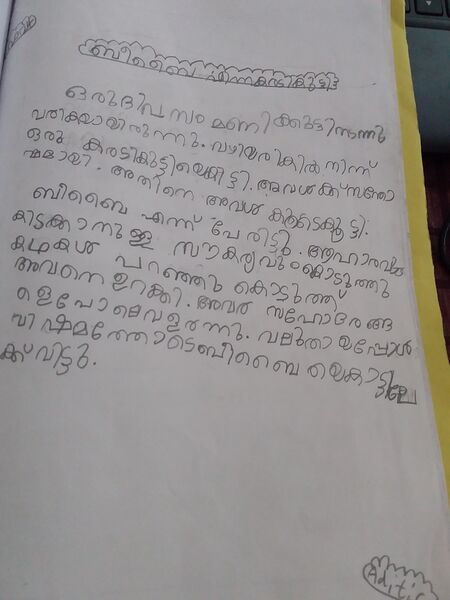 ബീബൈ എന്നകരടികുട്ടി
ഒരുദിവസം മണിക്കുട്ടിനടന്നു
വരികയായിരുന്നു. വഴിയരികിൽ നിന്ന്
ഒരു കരടികുട്ടിയെകിട്ടി. അവൾക്ക് സന്തോ
ഷമായി. അതിനെ അവൾ കൂടെക്കൂട്ടി.
ബീബൈ എന്ന് പേരിട്ടു. ആഹാരവും
കിടക്കാനുള്ള സൗകര്യവുംകൊടുത്തു
കഥകൾ പറഞ്ഞു കൊടുത്ത്
അവനെ ഉറക്കി. അവർ സഹോദരങ്ങ
ളെപോലെവളർന്നു. വലുതായപ്പോൾ
വിഷമത്തോടെബീബൈയെകാട്ടിലേ
ക്ക് വിട്ടു.